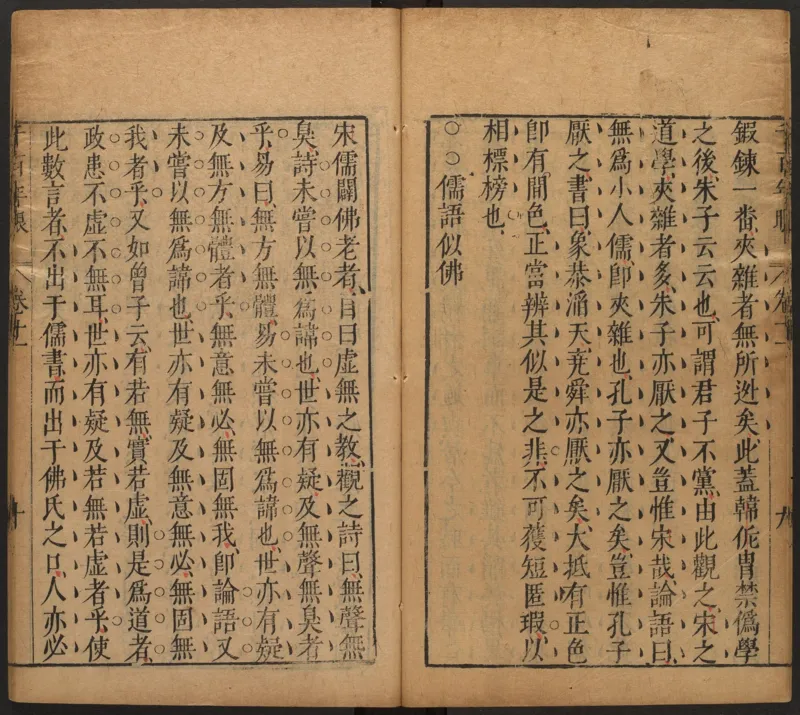 鍜鍊一番夾雜者無所迯矣此蓋韓侂冑禁僞學
之後朱子云云也可謂君子不黨由此觀之宋之
道學夾雜者多朱子亦厭之又豈惟宋哉論語曰
無爲小人儒卽夾雜也孔子亦厭之矣豈惟孔子
厭之書曰象恭滔天堯舜亦厭之矣大抵有正色
卽有間色正當辨其似是之非不可獲短匿瑕以
相標榜也
○○儒語似佛
宋儒闢佛老者目曰虛無之教觀之詩曰無聲無
臭詩未嘗以無爲諱也世亦有疑及無聲無臭者
乎易曰無方無體易未嘗以無爲諱也世亦有疑
及無方無體者乎無意無必無固無我卽論語又
未嘗以無爲諱也世亦有疑及無意無必無固無
我者乎又如曾子云有若無實若虛則是爲道者
政患不虛不無耳世亦有疑及若無若虛者乎使
此數言者不出于儒書而出于佛氏之口人亦必
卷十一
十
卷十一
九